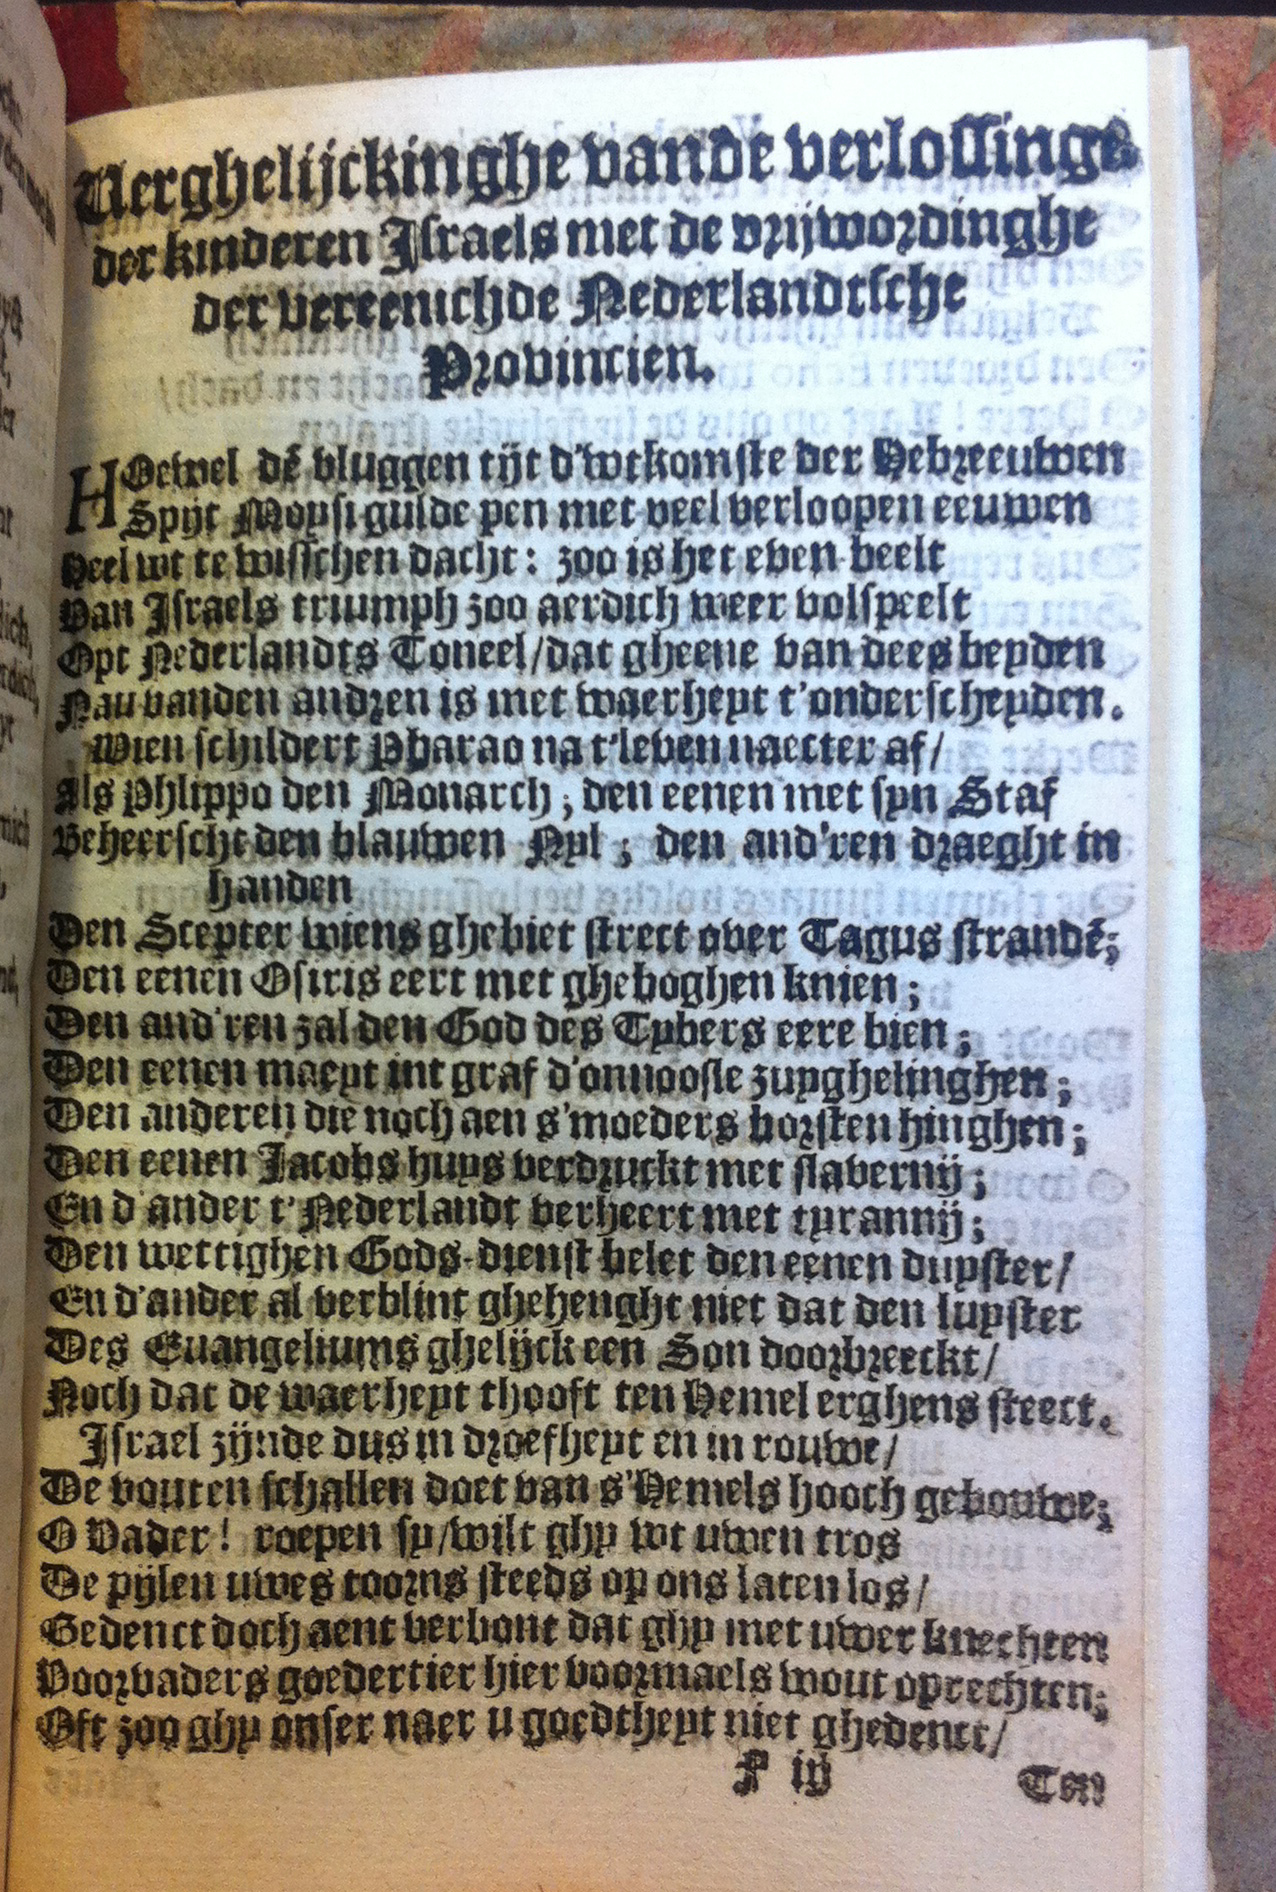 Verghelijckinghe vande verlossinge
der kinderen Israels met de vrijwordinghe
der vereenichde Nederlandtsche
Provincien.
HOewel dē vluggen tijt d'wtkomste der Hebreeuwen
Spijt Moysi gulde pen met veel verloopen eeuwen
Heel wt te wisschen dacht: zoo is het even-beelt
Van Israels triumph zoo aerdich weer volspeelt
Opt Nederlandts Toneel/dat gheene van dees beyden
Nau vanden andren is met waerheyt t'onderscheyden.
Wien schildert Pharao na t'leven naecter af/
Als Phlippo den Monarch; den eenen met syn Staf
Beheerscht den blauwen Nyl; den and'ren draeght in
handen
Den Scepter wiens ghebiet strect over Tagus strandē;
Den eenen Osiris eert met gheboghen knien;
Den and'ren zal den God des Tybers eere bien;
Den eenen maeyt int graf d'onnoosle zuyghelinghen;
Den anderen die noch aen s'moeders borsten hinghen;
Den eenen Jacobs huys verdruckt met slavernij;
En d'ander t'Nederlandt verheert met tyrannij;
Den wettighen Gods-dienst belet den eenen duyster/
En d'ander al verblint ghehenght niet dat den luyster
Des Euangeliums ghelijck een Son doorbreeckt/
Noch dat de waerheyt thooft ten Hemel erghens steect.
Israel zijnde dus in droefheyt en in rouwe/
De vouten schallen doet van s'Hemels hooch gebouwe;
O Vader! roepen sy/wilt ghy wt uwen tros
De pijlen uwes toorns steeds op ons laten los/
Gedenct doch aent verbont dat ghy met uwer knechten
Voorvaders goedertier hier voormaels wout oprechten;
Oft zoo ghy onser naer u goedtheyt niet ghedenct/
P iij
Ten